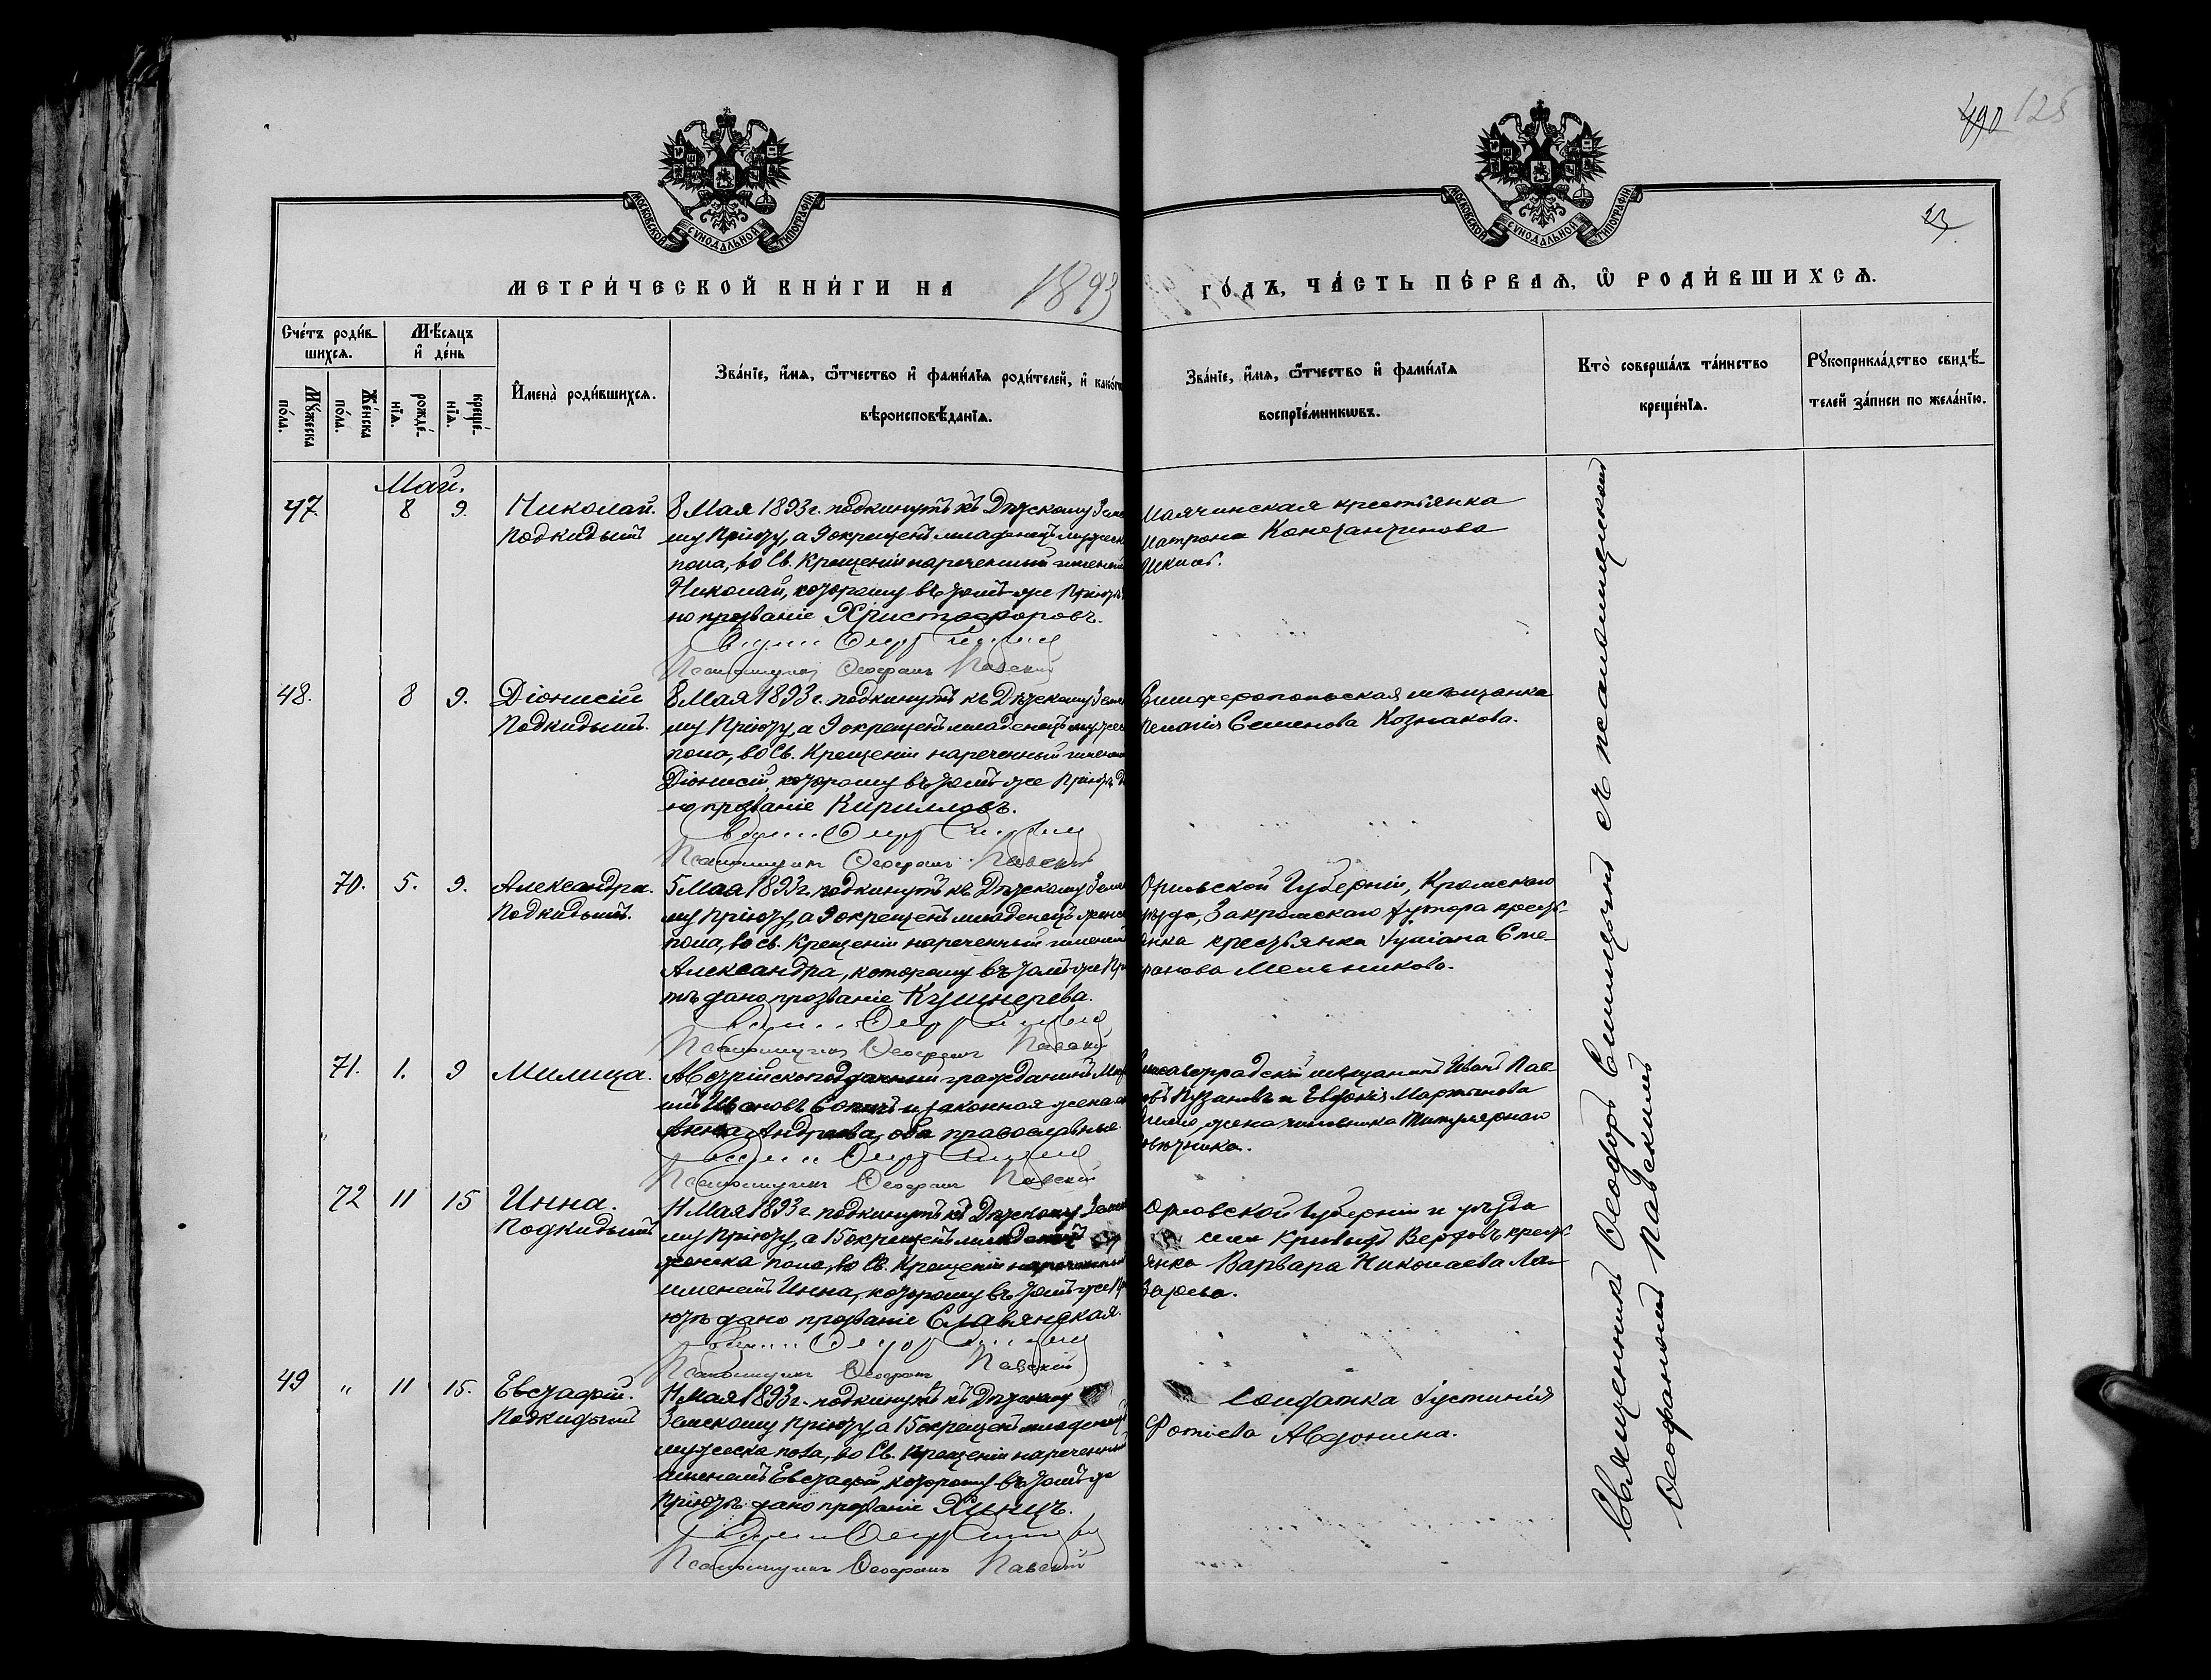 490 125
23
МОСКОВСКОЙ СѴНОДАЛЬНОЙ ТИПОГРАФІИ
МОСКОВСКОЙ СѴНОДАЛЬНОЙ ТИПОГРАФІИ
МЕТРИ́ЧЕСКОЙ КНИ́ГИ НА 1893
ГО́ДЪ, ЧА́СТЬ ПЕ́РВАѦ, Ѡ҃ РОДИ́ВШИХСѦ.
Сче́тъ роди́в-
шихсѧ.
Мѣ́сѧцъ
и҆ де́нь
Мꙋ́жеска
по́ла.
Же́нска
по́ла.
рожде́-
нїѧ.
креще́-
нїѧ.
И҆мена̀ роди́вшихсѧ.
Зва́нїе, и҆́мѧ, ѻ҆́тчество и҆ фами́лїѧ роди́телей, и҆ како́гѡ
вѣроисповѣ́данїѧ.
Зва́нїе, и҆́мѧ, ѻ҆́тчество и҆ фами́лїѧ
воспрїе́мникѡвъ.
Кто̀ соверша́лъ та́инство
креще́нїѧ.
Рꙋкоприкла́дство свидѣ́-
телей за́писи по жела́нїю.
Май.
47 8 9. Николай.
Подкидышъ
8 Мая 1893 г. подкинутъ къ Дѣтскому Земско
му Пріюту, а 9 окрещенъ младенецъ мужеска
пола, во Св. Крещеніи нареченный именемъ
Николай, которому въ томъ-же Пріютѣ
но прозваніе Христофоровъ.
Псаломщикъ Ѳеофанъ Павскій
Маячинская крестьянка
Матрона Константинова
48. 8 9. Діонисій
Подкидышъ.
8 Мая 1893 г. подкинутъ къ Дѣтскому Земско
му Пріюту, а 9 окрещенъ младенецъ мужеска
пола, во Св. Крещеніи нареченный именемъ
Діонисій, которому въ томъ-же Пріютѣ да
но прозваніе Кирилловъ.
Псаломщикъ Ѳеофанъ Павскій
Симферопольская мѣщанка
Пелагія Семенова Кознакова.
70. 5. 9. Александра.
Подкидышъ.
5 Мая 1893 г. подкинутъ къ Дѣтскому Земско
му Пріюту, а 9 окрещенъ младенецъ женска
пола, во Св. Крещеніи нареченный именемъ
Александра, которому въ томъ-же Прію
тѣ дано прозваніе Кушнерева.
Псаломщикъ Ѳеофанъ Павскій
Орловской Губерніи, Кромскаго
уѣзда, Закромскаго хутора кресть-
янка крестьянка Іуліана Сте-
фанова Мельникова.
71. 1. 9 Милица.
Австрійскоподданный гражданинъ
Ивановъ и законная жена его
Анна Андреева, оба православные.
Псаломщикъ Ѳеофанъ Павскій
Елисаветградскій мѣщанинъ Иванъ Пав-
овъ Пузановъ и Евдокія Мартынова
жена чиновника Титулярнаго
совѣтника.
72 11 15 Инна.
Подкидышъ
11 Мая 1893 г. подкинутъ къ Дѣтскому Земско
му Пріюту, а 15 окрещенъ младенецъ
женска пола, во Св. Крещеніи нареченный
именемъ Инна, которому въ томъ-же Прі
ютѣ дано прозваніе Славянская.
Псаломщикъ Ѳеофанъ Павскій
Орловской Губерніи и уѣзда
села Кривыхъ Верховъ кресть-
янка Варвара Николаева Ла-
зарева.
49 " 11 15. Евстафій.
Подкидышъ
11 Мая 1893 г. подкинутъ къ Дѣтскому
Земскому Пріюту, а 15 окрещенъ младенецъ
мужеска пола, во Св. Крещеніи нареченный
именемъ Евстафій, которому въ томъ-же
Пріютѣ дано прозваніе Хинцъ.
Псаломщикъ Ѳеофанъ Павскій
Солдатка Іустинія
Фотіева Авдонина.
Священникъ Ѳеодоръ съ псаломщикомъ
Ѳеофаномъ Павскимъ